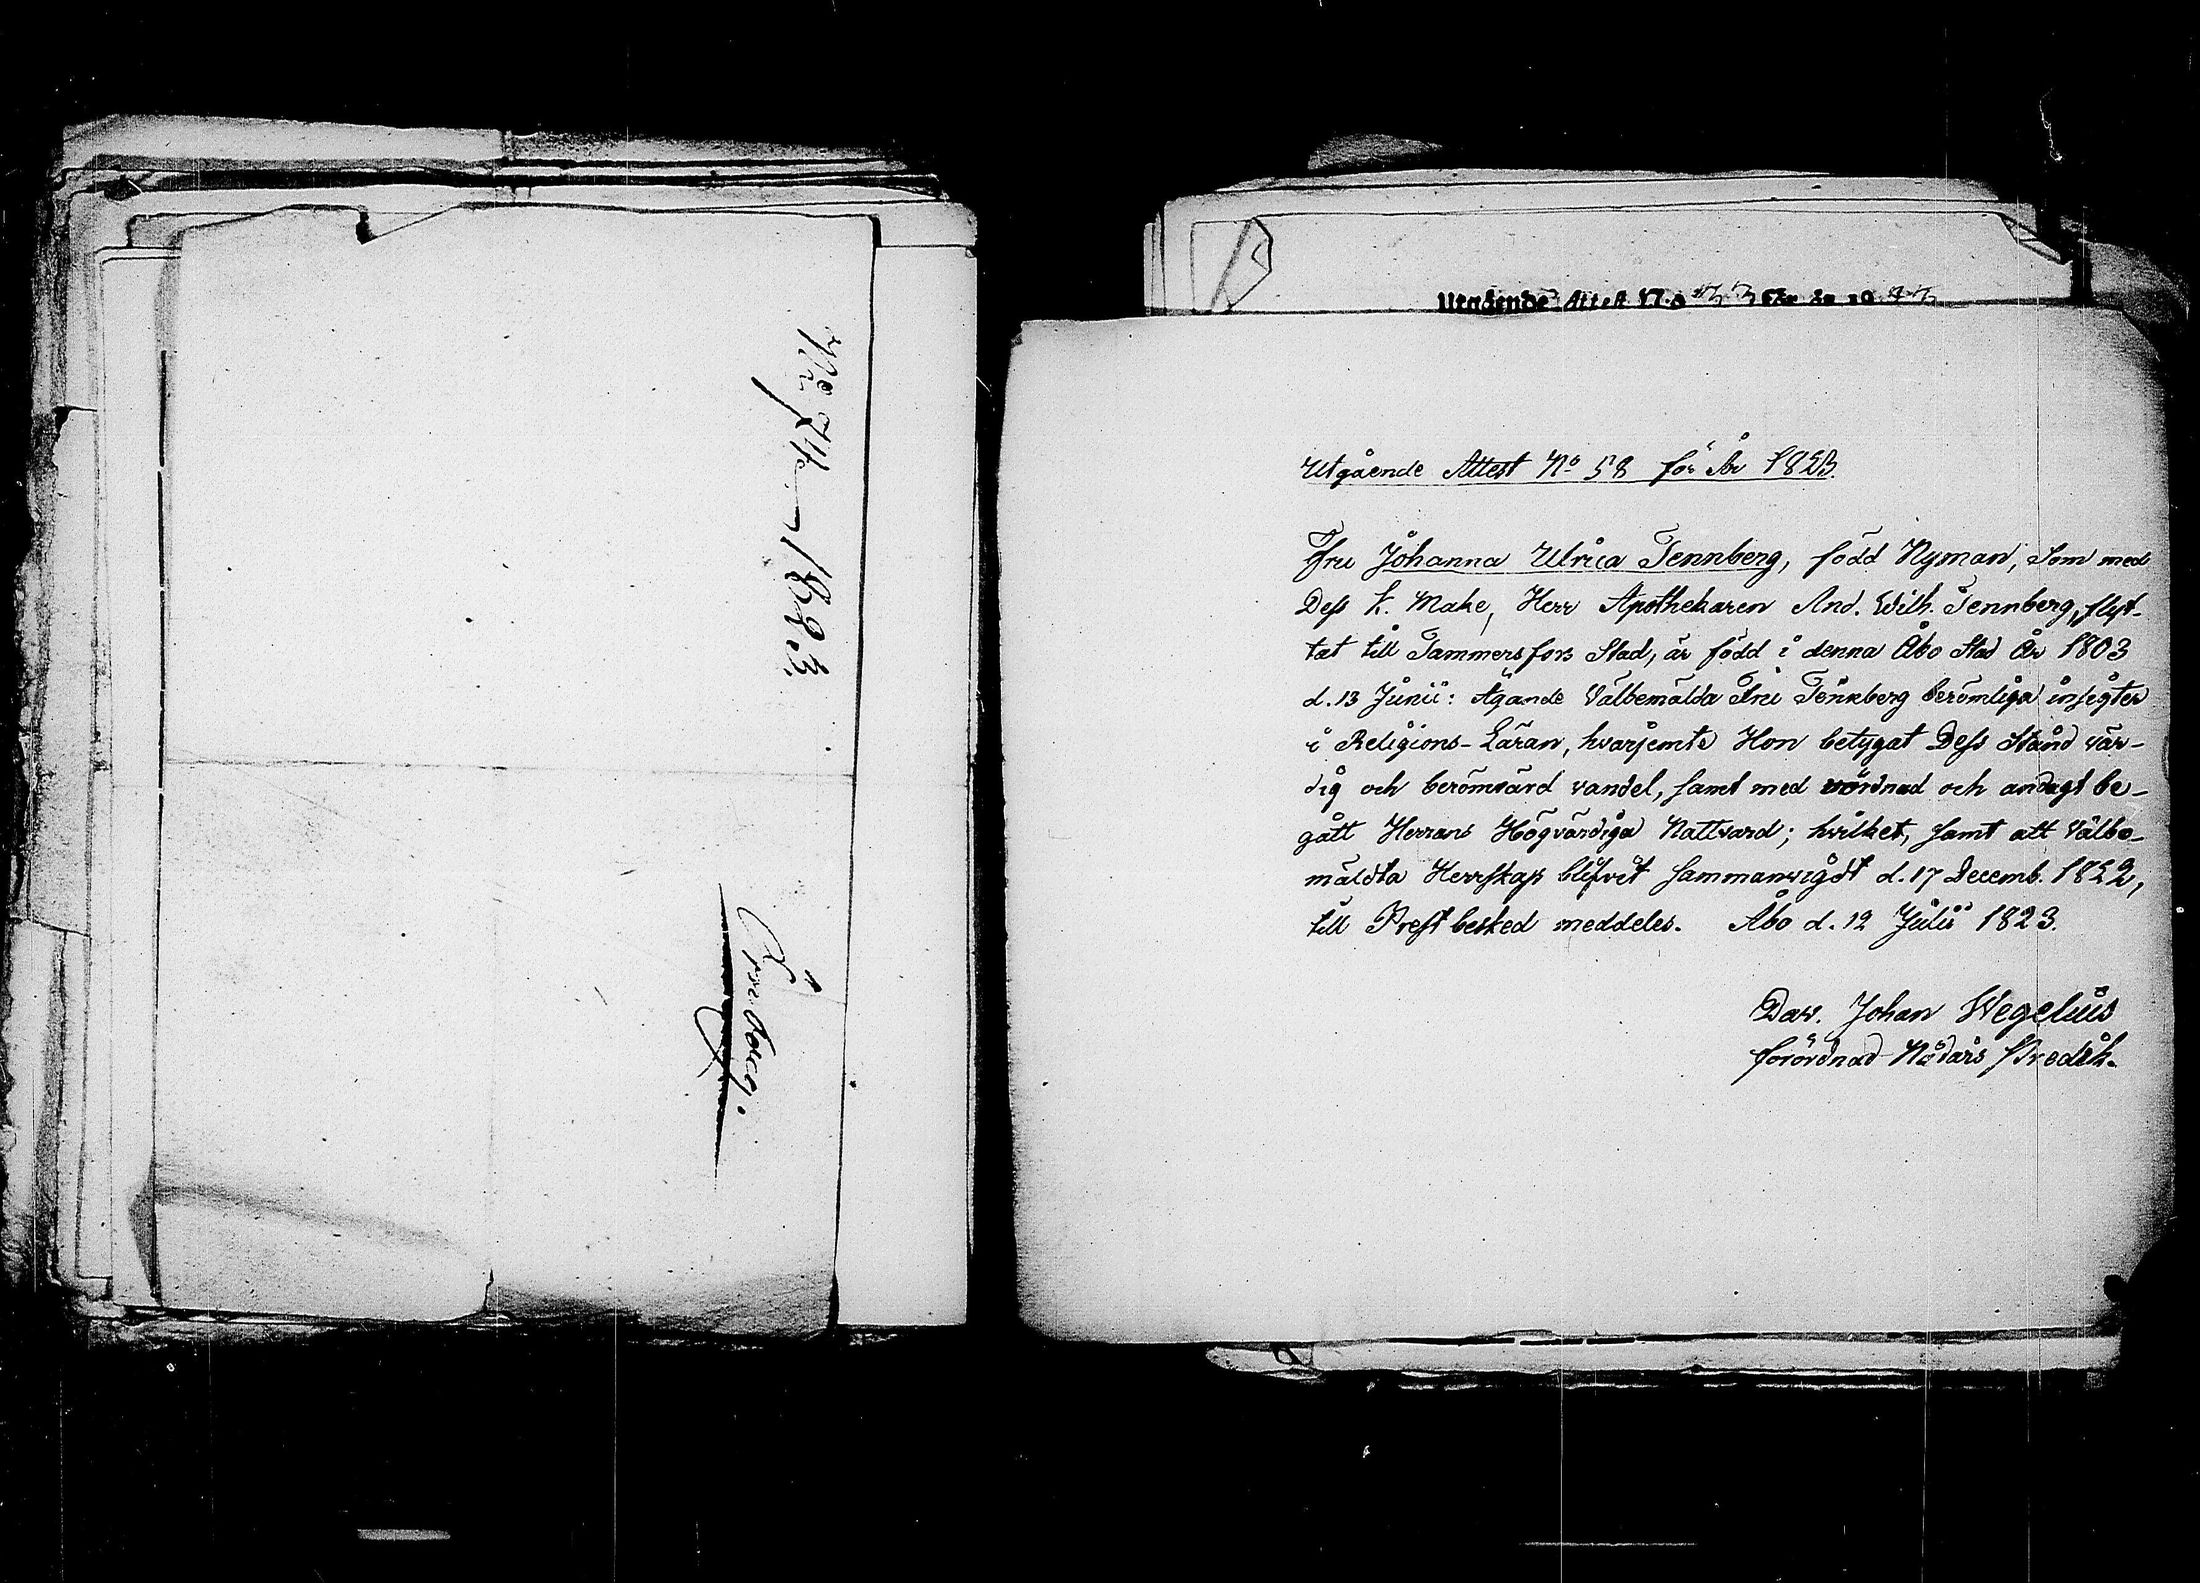 No 74. 1823.
Utgående Attest No
Utgående Attest No 58 för År 1823.
Fru Johanna Ulrica Tennberg, född Nyman, som med
Dess k. Make, Herr Apothekaren And. Wilh. Tennberg, flyt-
tat till Tammersfors Stad, är född i denna Åbo Stad År 1803
d. 13 Junii: Ägande Välbemälda Fru Tennberg berömliga insigter
i Religions-Läran, hvarjemte Hon betygat Dess Stånd vär-
dig och berömvärd vandel, samt med vördnad och andagt be-
gått Herrans Högvärdiga Nattvard; hvilket, samt att Välbe-
mäldta Herrskap blifvit sammanvigdt d. 17 Decemb. 1822,
till Prestbesked meddeles. Åbo d. 12 Julii 1823.
Dav. Johan Wegelius
förordnad Nådårs Predik.